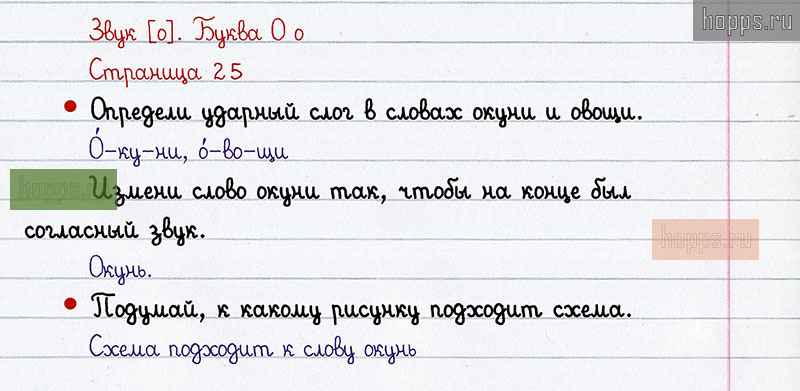 hopps.ru
Звук [о]. Буква О о
Страница 25
Определи ударный слог в словах окуни и овощи.
О́-ку-ни, о́-во-щи
hopps.ru
Измени слово окуни так, чтобы на конце был
согласный звук.
hopps.ru
Окунь.
Подумай, к какому рисунку подходит схема.
Схема подходит к слову окунь